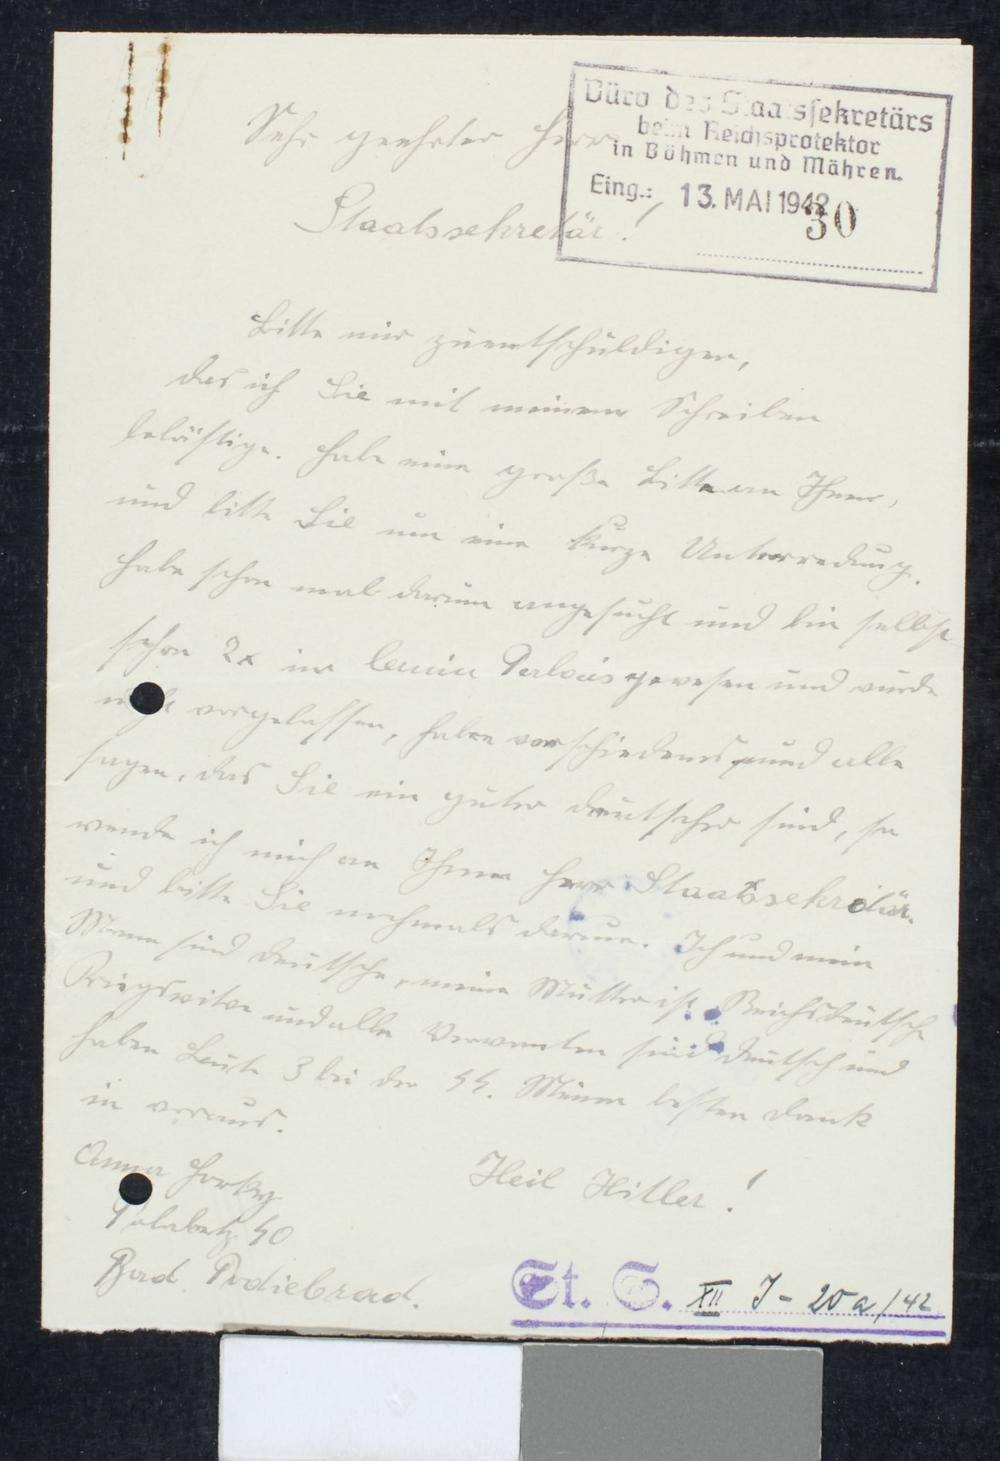 Büro des Staatssekretärs
beim Reichsprotektor
in Böhmen und Mähren.
Eing.: 13. MAI 1942
30
Sehr geehrter Herr
Staatssekretär!
Bitte mir zuentschuldigen,
das ich Sie mit meinem Schreiben
belästige. Habe eine große Bitte an Ihnen,
und bitte Sie um eine kurze Unterredung.
Habe schon mal darum angesucht und bin selbst
schon 2x im Palais gewesen und wurde
nicht vorgelassen, habe verschiedenes und alle
sagen, das Sie ein guter deutscher sind, so
wende ich mich an Ihnen Herr Staatssekretär.
und bitte Sie nochmals darum. Ich und mein
Mann sind deutsche, meine Mutter ist Reichsdeutsche
Kriegswitwe und alle Verwandten sind deutsch und
haben heute 3 bei der SS. Meinen besten Dank
in voraus.
Heil Hitler!
Anna
40
Bad Podiebrad.
St. S. XII J - 20 a/42